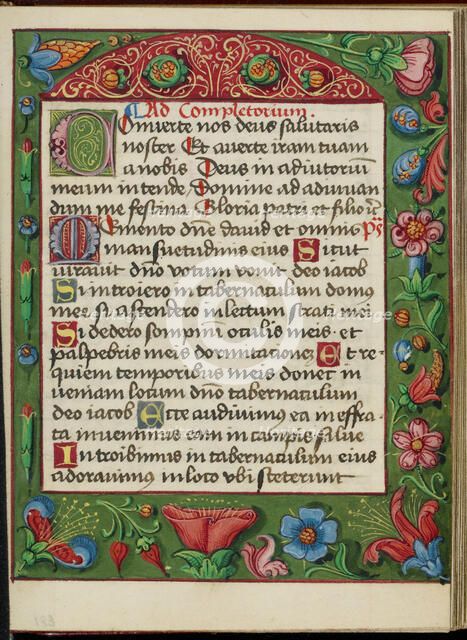 Ad Completorium.
Converte nos deus salutaris
noster Et averte iram tuam
a nobis Deus in adiutoriū
meum intende Domine ad adiuvan
dum me festina Gloria patri et filio
Memento dñe david et omnis ps
mansuetudinis eius Sicut
iuravit dño votum vovit deo iacob
Si introiero in tabernaculum domus
mee si ascendero in lectum strati mei
Si dedero sompnū oculis meis et
palpebris meis dormitationē Et re
quiem temporibus meis donec in
veniam locum dño tabernaculum
deo iacob Ecce audivimus ea in effra
ta invenimus eam in campis silve
Introibimus in tabernaculum eius
adoravimus in loco ubi steterunt